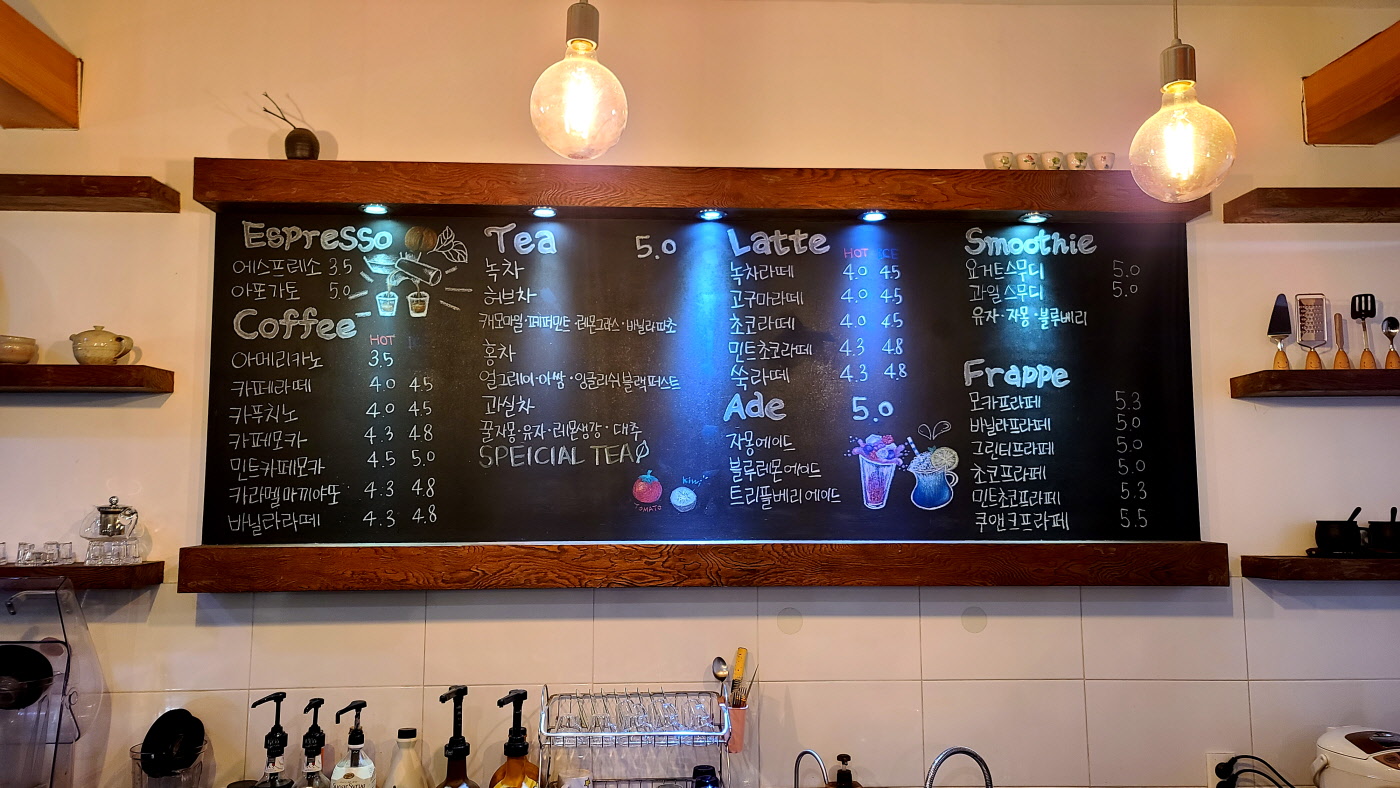 Espresso
에스프레소 3.5
아포가토 5.0
Coffee
HOT
아메리카노 3.5
카페라떼 4.0 4.5
카푸치노 4.0 4.5
카페모카 4.3 4.8
민트카페모카 4.5 5.0
카라멜마끼야또 4.3 4.8
바닐라라떼 4.3 4.8
Tea 5.0
녹차
허브차
캐모마일·페퍼민트·레몬그라스·바닐라루이보스
홍차
얼그레이·아쌈·잉글리쉬블랙퍼스트
과실차
꿀자몽·유자·레몬생강·대추
SPEICIAL TEA
TOMATO
kiwi
Latte
HOT ICE
녹차라떼 4.0 4.5
고구마라떼 4.0 4.5
초코라떼 4.0 4.5
민트초코라떼 4.3 4.8
쑥라떼 4.3 4.8
Ade 5.0
자몽에이드
블루레몬에이드
트리플베리에이드
Smoothie
요거트스무디 5.0
과일스무디 5.0
유자·자몽·블루베리
Frappe
모카프라페 5.3
바닐라프라페 5.0
그린티프라페 5.0
초코프라페 5.0
민트초코프라페 5.3
쿠앤크프라페 5.5